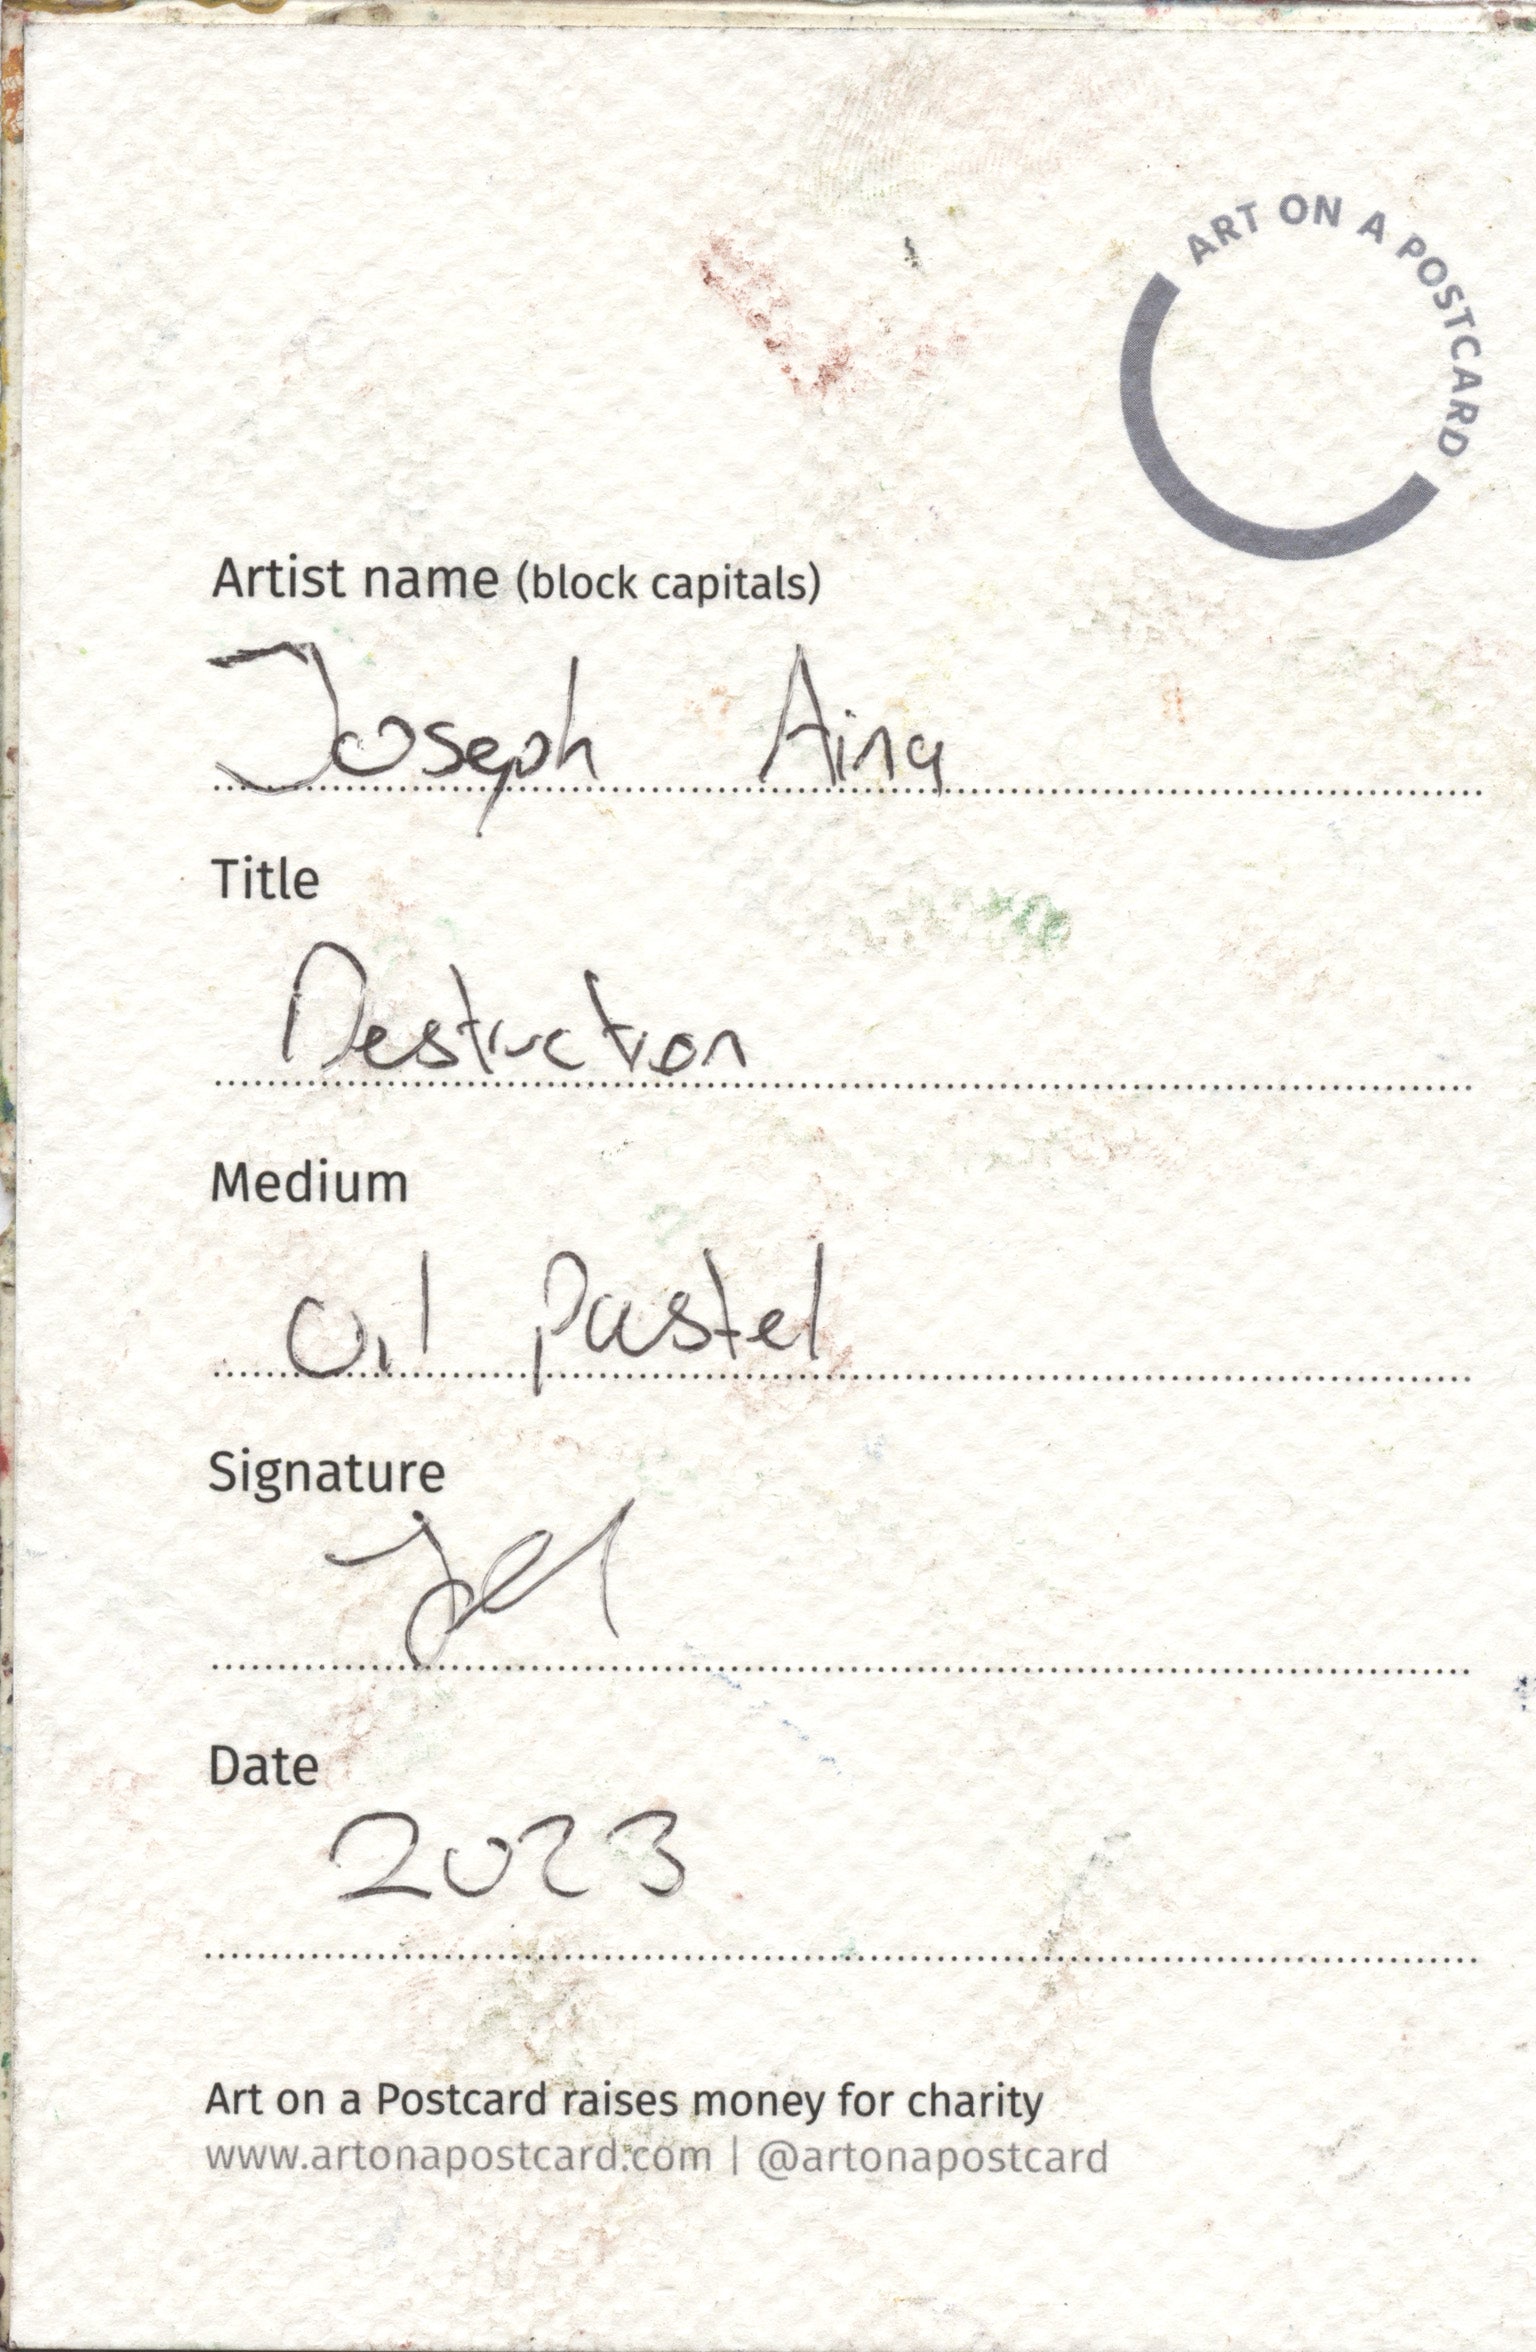 ART ON A POSTCARD
Artist name (block capitals)
Joseph Aina
Title
Destruction
Medium
Oil pastel
Signature
Date
2023
Art on a Postcard raises money for charity
www.artonapostcard.com | @artonapostcard